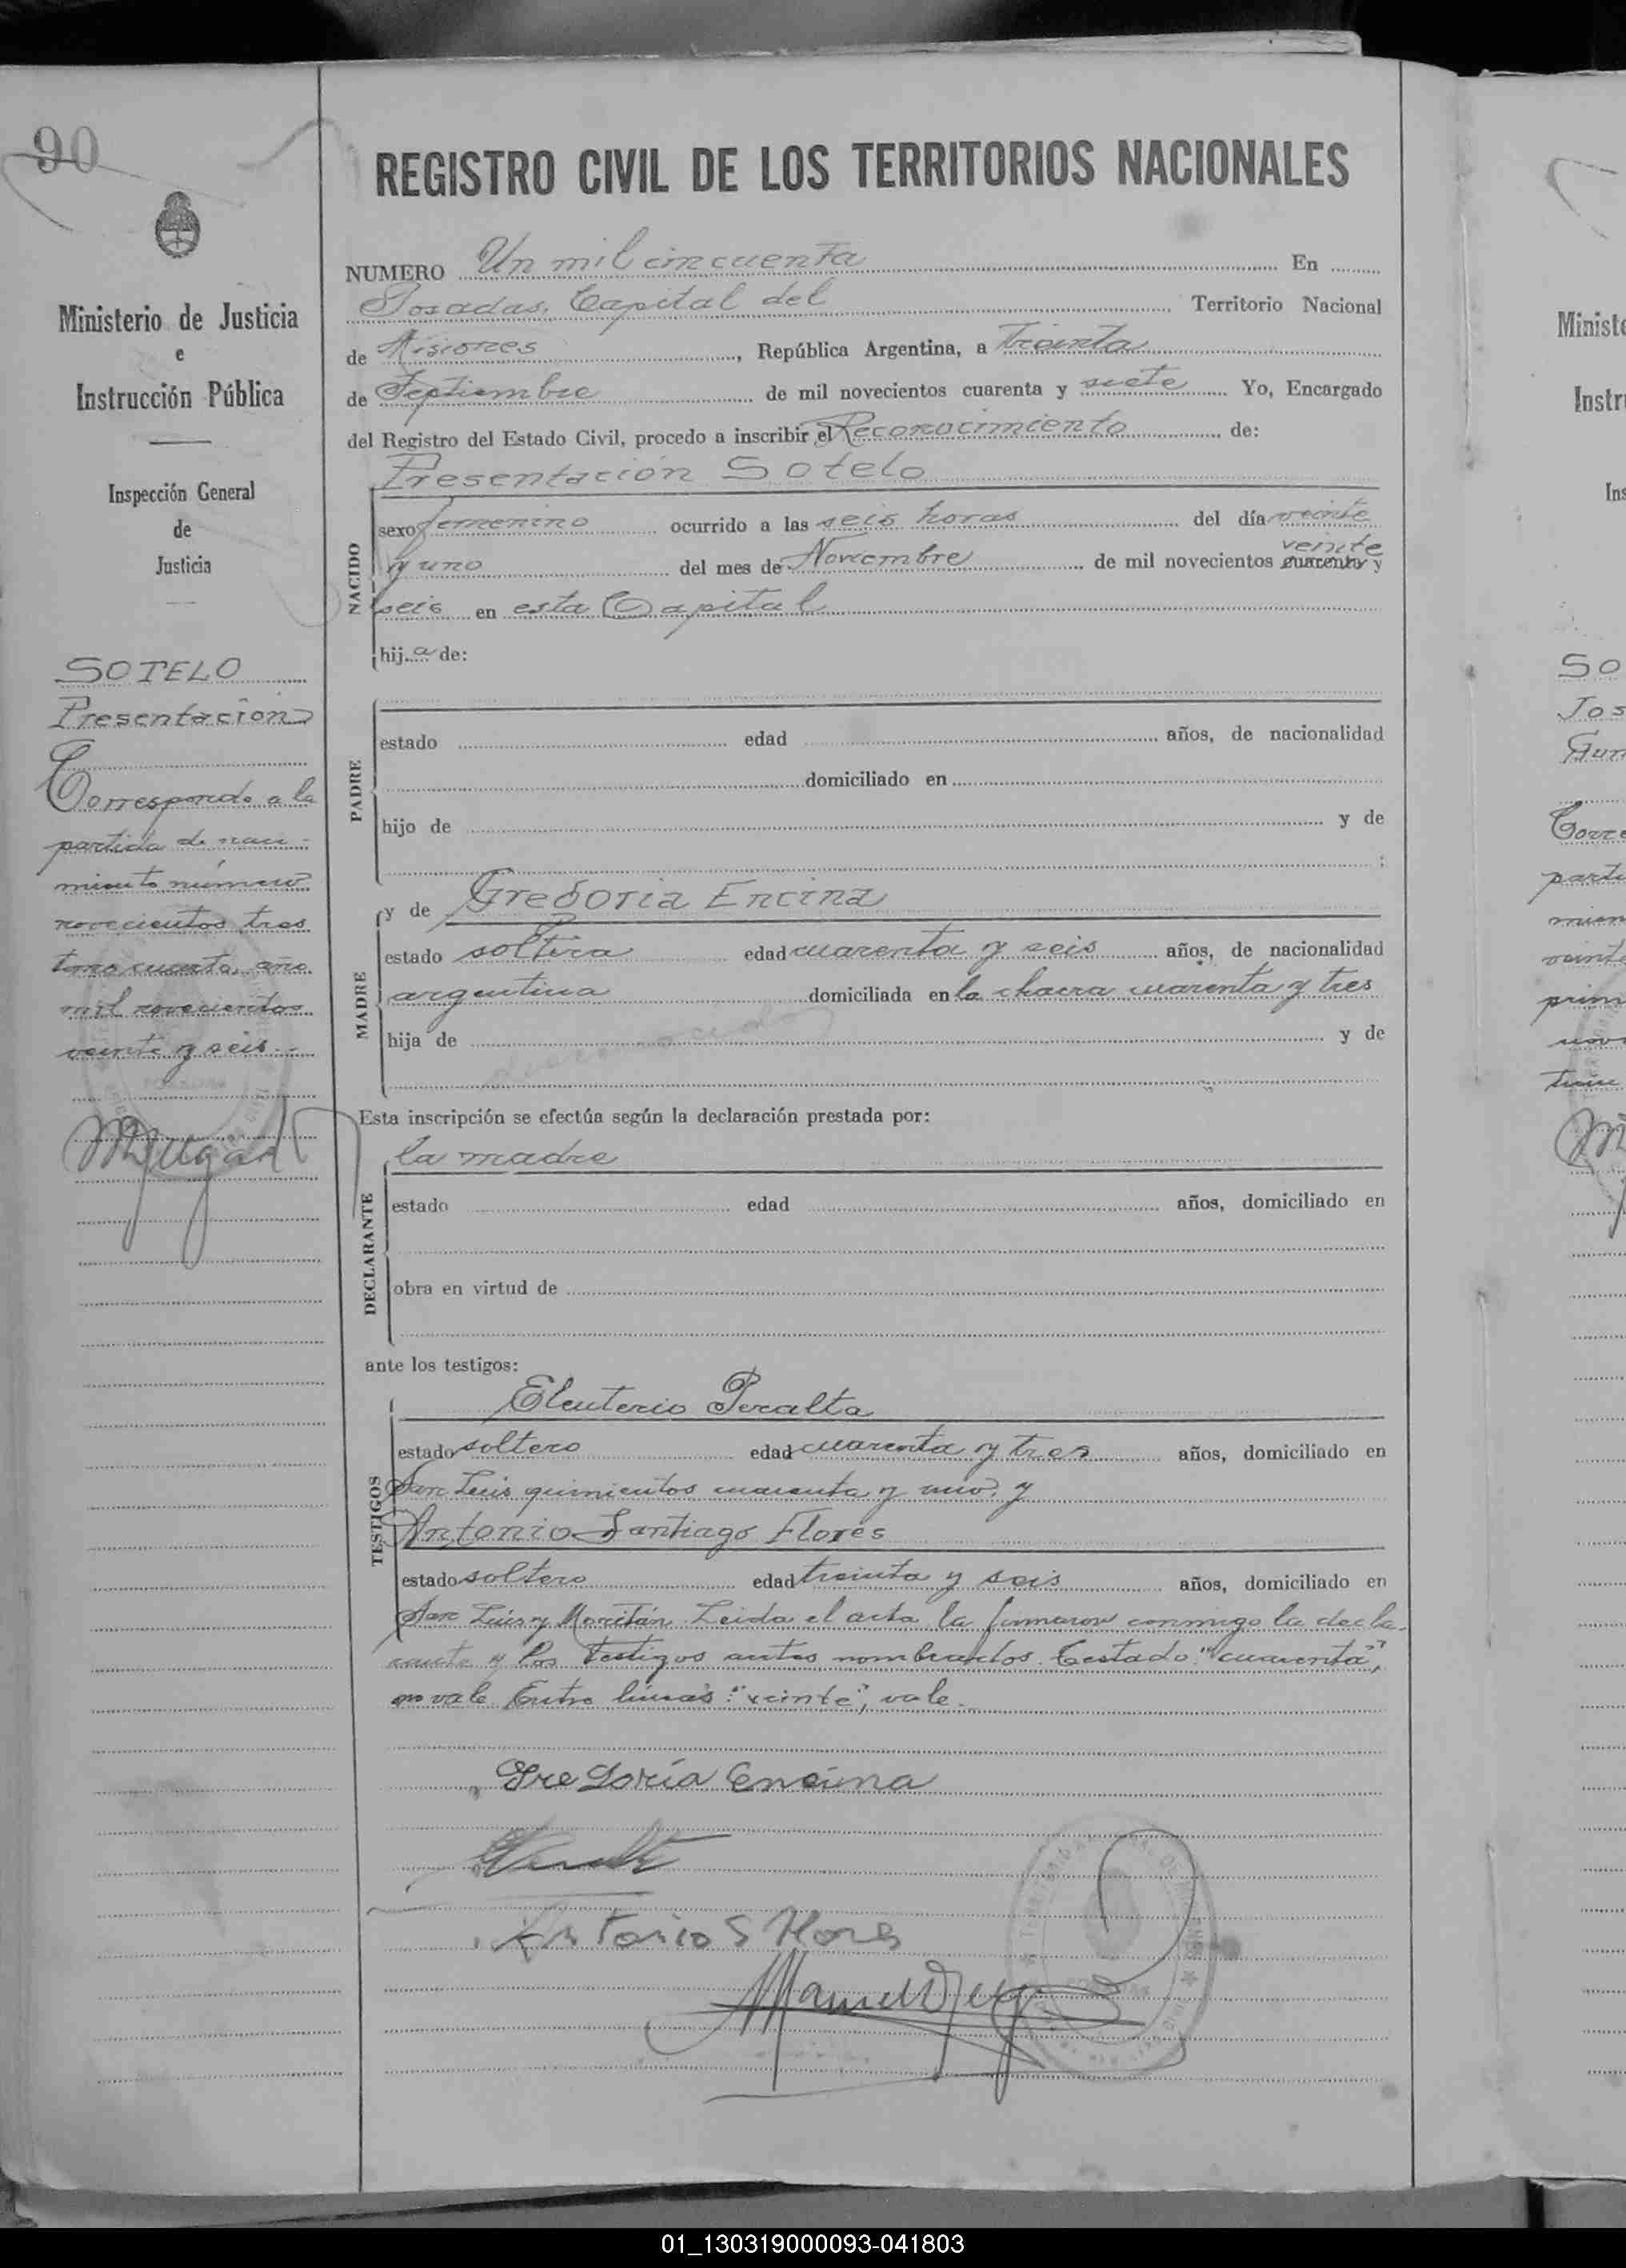 90
Ministerio de Justicia
e
Instrucción Pública
Inspección General
de
Justicia
SOTELO
Presentación
Corresponde a la
partida de naci-
miento número
novecientos tres
tomo cuarto, año
mil novecientos
veinte y seis.-
REGISTRO CIVIL DE LOS TERRITORIOS NACIONALES
NUMERO Un mil cincuenta En
Posadas, Capital del Territorio Nacional
de Misiones, República Argentina, a treinta
de Septiembre de mil novecientos cuarenta y siete Yo, Encargado
del Registro del Estado Civil, procedo a inscribir el Reconocimiento de:
Presentación Sotelo
NACIDO
sexo femenino ocurrido a las seis horas del día veinte
veinte
y uno del mes de Noviembre de mil novecientos cuarenta y
seis en esta Capital
hija de:
PADRE
estado edad años, de nacionalidad
domiciliado en
hijo de y de
;
y de Gregoria Encina
MADRE
estado soltera edad cuarenta y seis años, de nacionalidad
argentina domiciliada en la chacra cuarenta y tres
hija de y de
Esta inscripción se efectúa según la declaración prestada por:
la madre
DECLARANTE
estado edad años, domiciliado en
obra en virtud de
ante los testigos:
Eleuterio Peralta
TESTIGOS
estado soltero edad cuarenta y tres años, domiciliado en
San Luis quinientos cuarenta y uno, y
Antonio Santiago Flores
estado soltero edad treinta y seis años, domiciliado en
San Luis y Leida el acta la firmaron conmigo la decla-
rante y los testigos antes nombrados. Testado: "cuarenta",
no vale. Entre líneas: "veinte", vale.
Gregoria Encina
Antonio S Flores
Ministe
Instr
Ins
So
Jos
Corre
parti
mien
veint
prim
nov
01_130319000093-041803